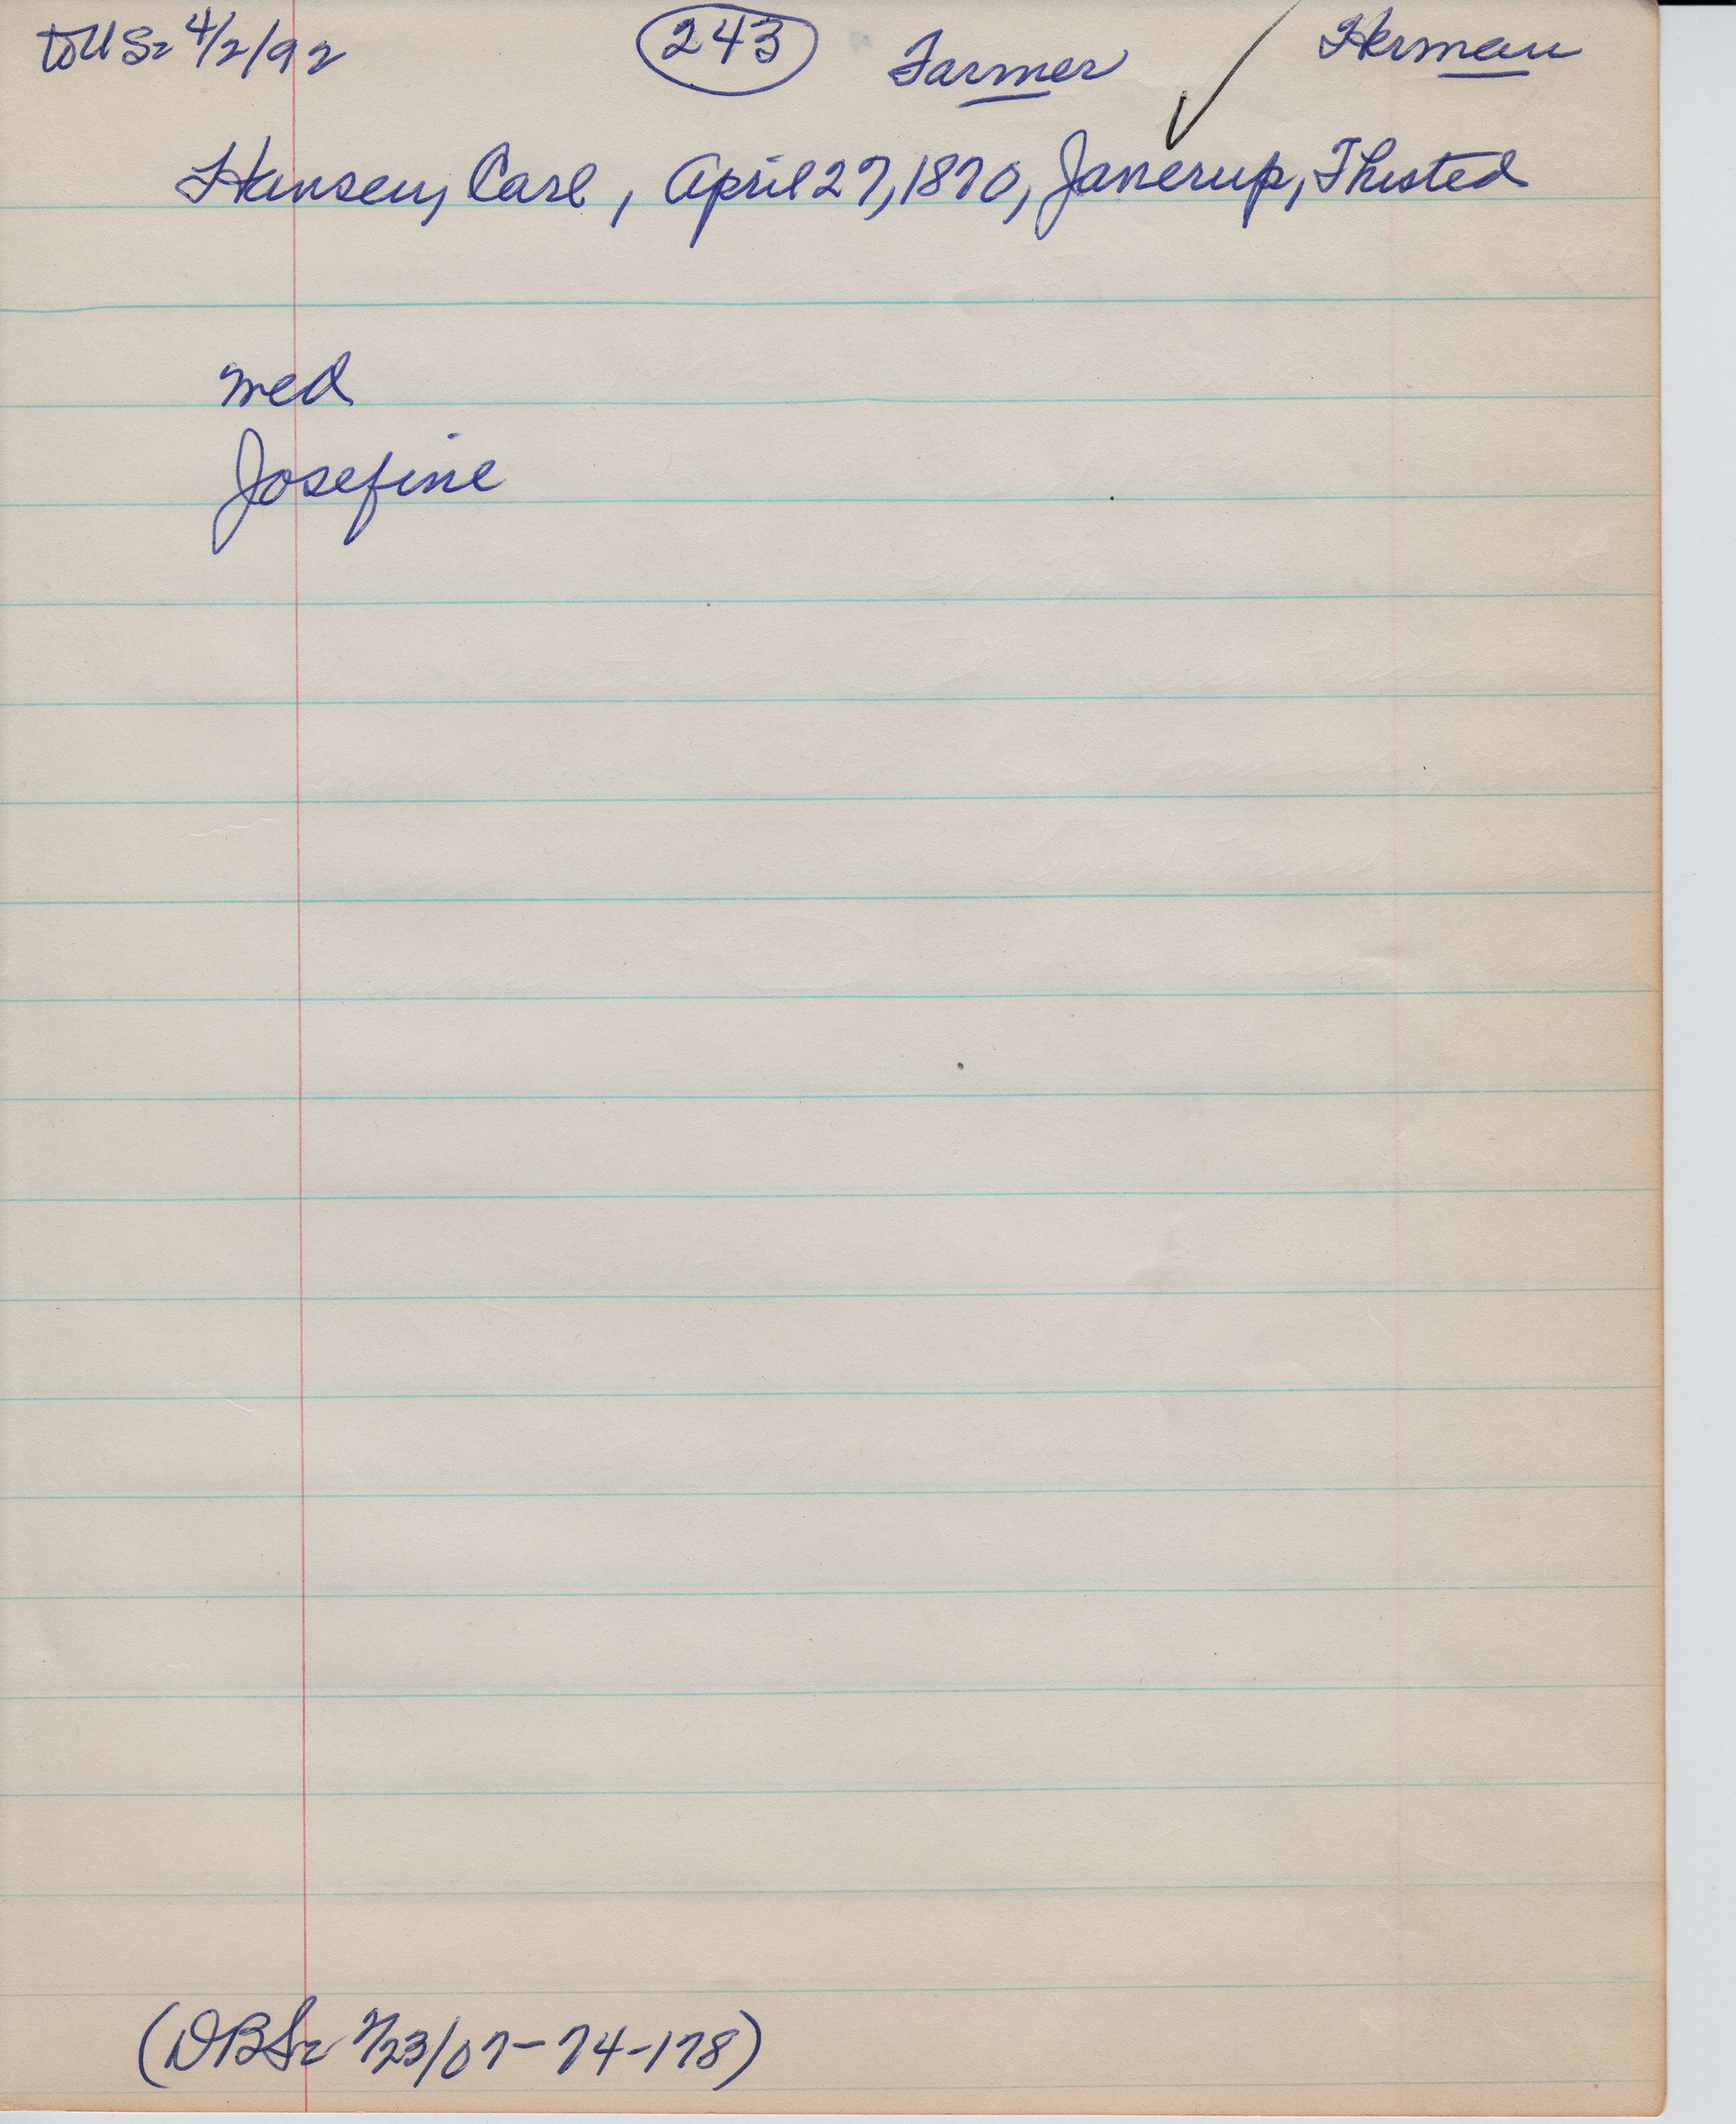 to US= 4/2/92 243 Farmer ✓ Herman
Hansen, Carl, April 27, 1870, Janerup, Thisted
med
Josefine
(DBS= 7/23/07-74-178)